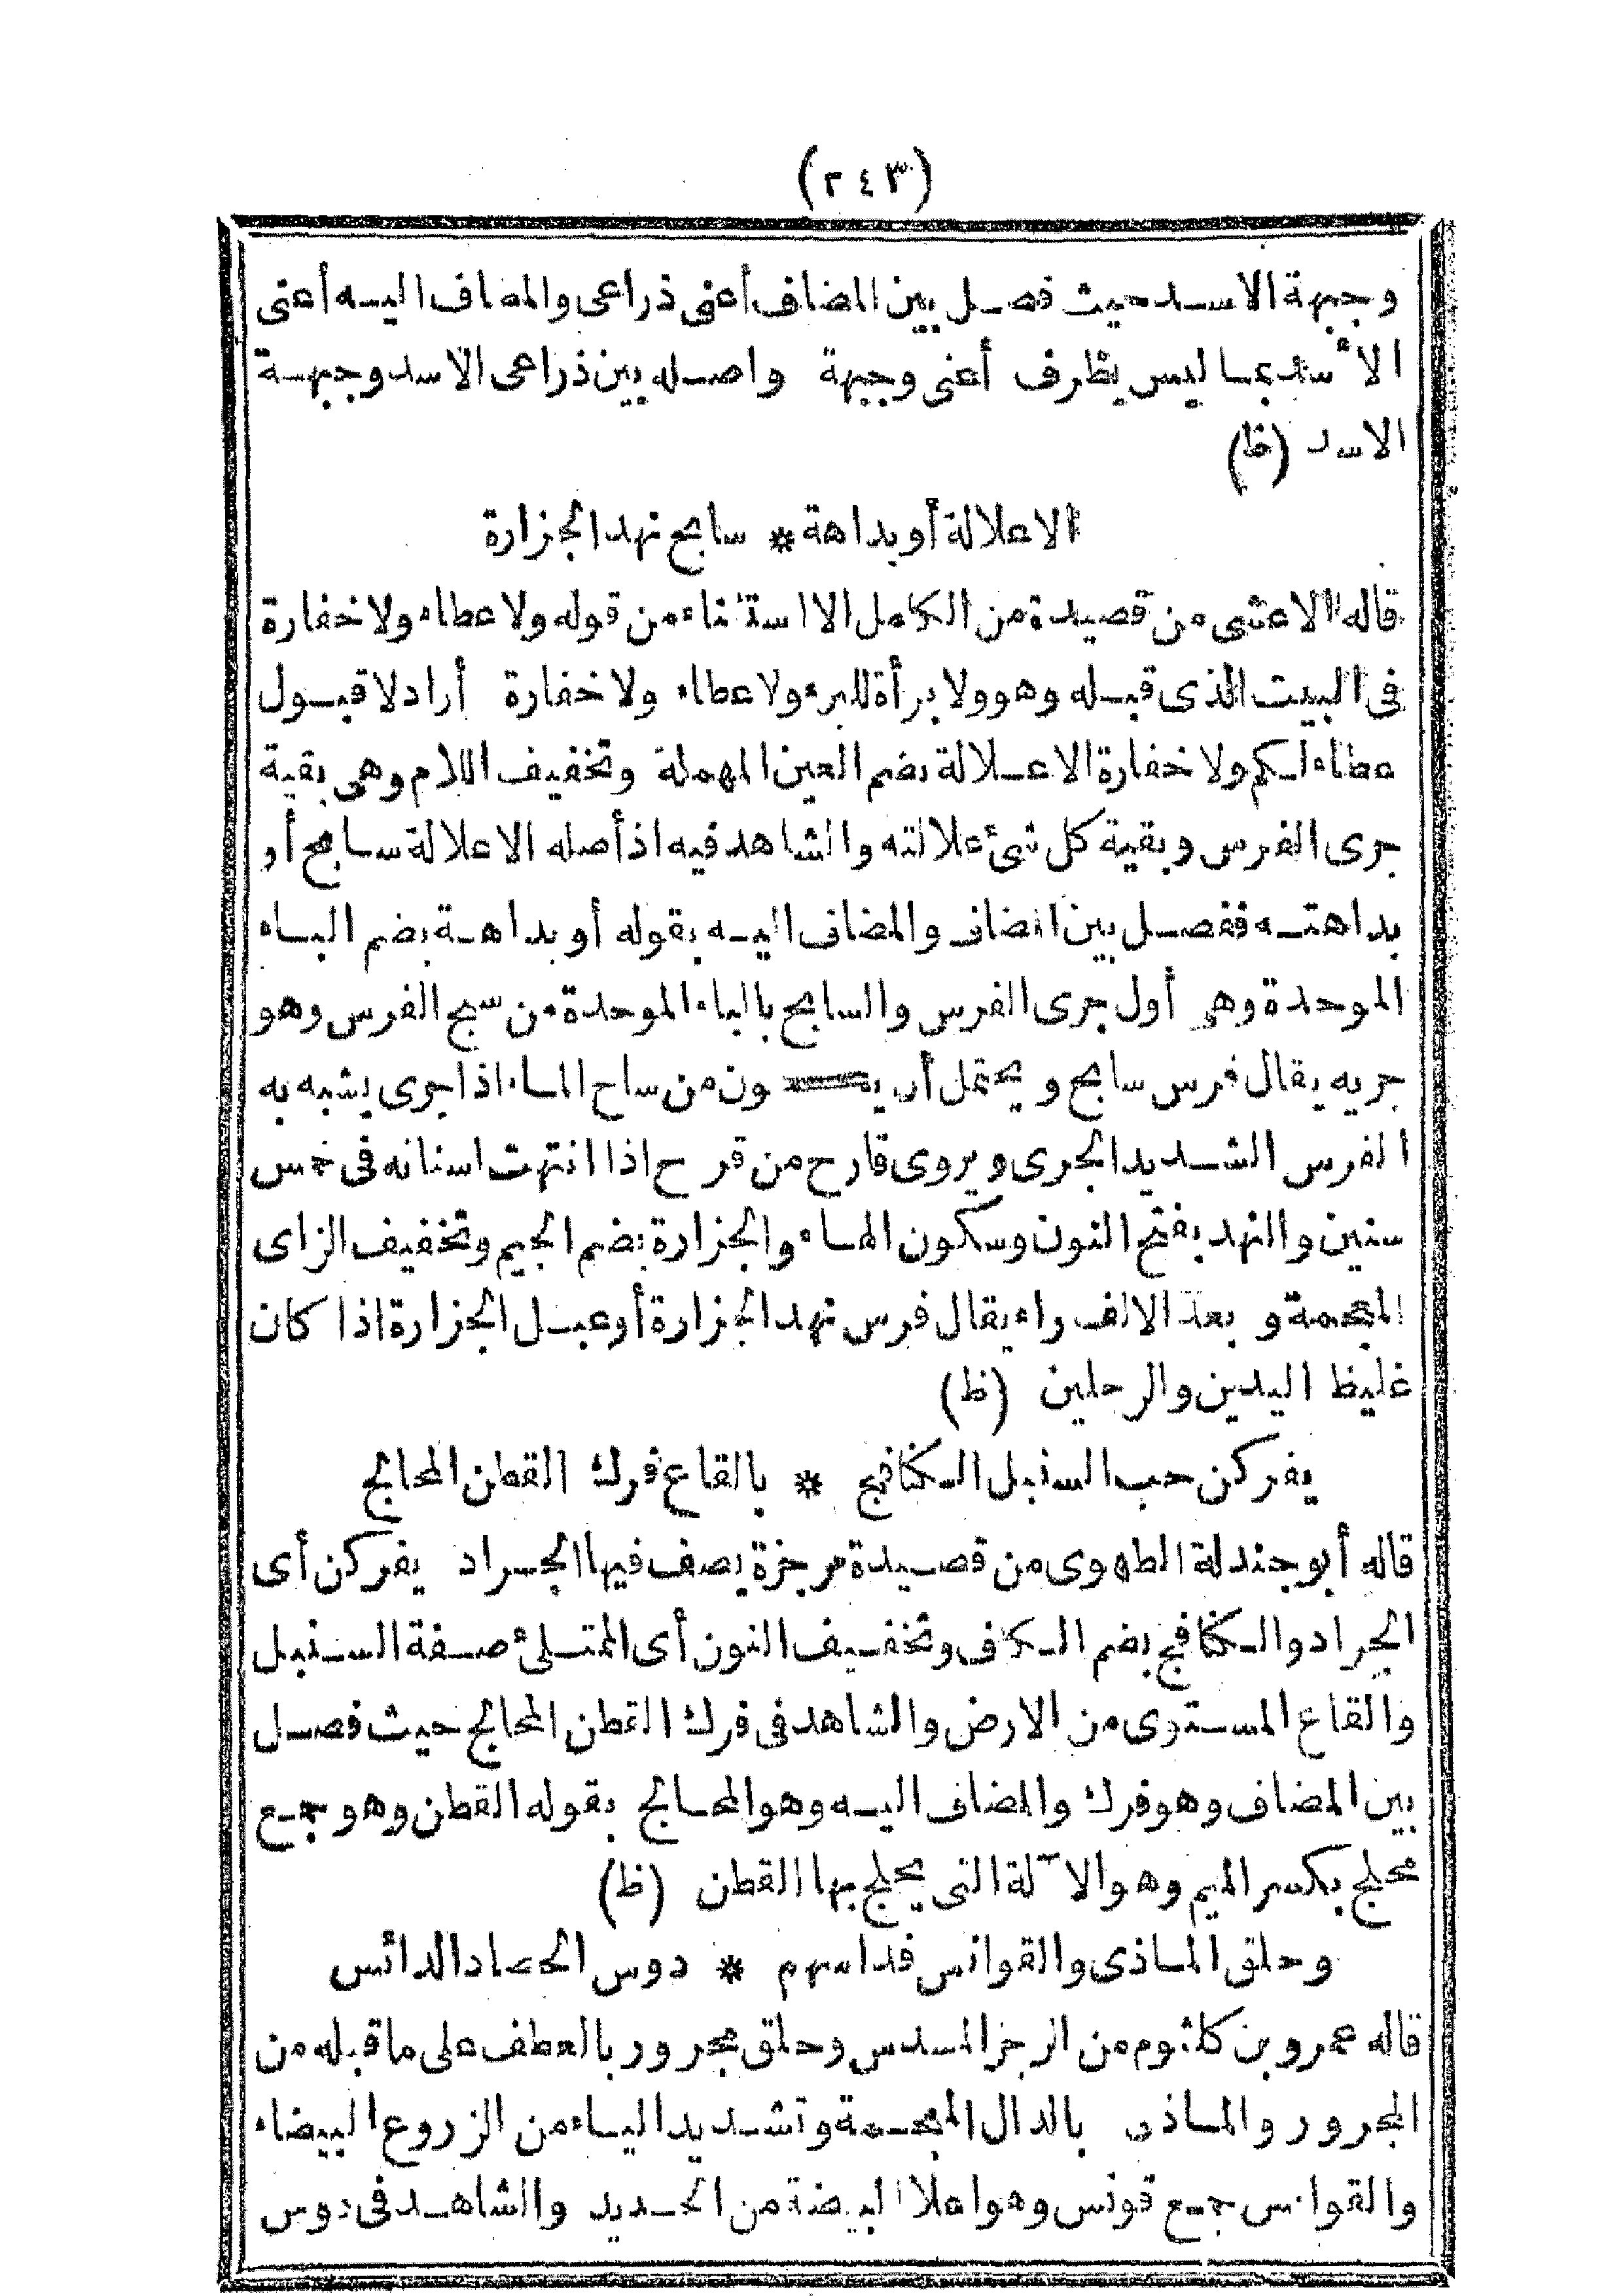 (٢٤٣)
وجبهة الاسد حيث فصل بين المضاف أعنى ذراعى والمضاف اليه أعنى
الأسد بما ليس بظرف أعنى وجبهة واصله بين ذراعى الاسد وجبهة
الاسد (ظ)
الاعلالة أو بداهة * سابح نهد الجزارة
قاله الاعشى من قصيدة من الكامل الا استثناء من قوله ولا عطاء ولا خفارة
فى البيت الذى قبله وهو ولا برأة للبرء ولا عطاء ولا خفارة أراد لا قبول
عطاء لكم ولا خفارة الاعلالة بضم العين المهملة وتخفيف اللام وهى بقية
جرى الفرس وبقية كل شئ علالته والشاهد فيه اذ أصله الاعلالة سابح أو
بداهته ففصل بين المضاف والمضاف اليه بقوله أو بداهة بضم الباء
الموحدة وهى أول جرى الفرس والسابح بالباء الموحدة من سبح الفرس وهو
جريه يقال فرس سابح ويحتمل أن يكون من ساح الماء اذا جرى يشبه به
الفرس الشديد الجرى ويروى قارح من قرح اذا انتهت اسنانه فى خمس
سنين والنهد بفتح النون وسكون الهاء والجزارة بضم الجيم وتخفيف الزاى
المعجمة وبعد الالف راء يقال فرس نهد الجزارة أو عبل الجزارة اذا كان
غليظ اليدين والرجلين (ظ)
يفركن حب السنبل الكنافج * بالقاع فرك القطن المحالج
قاله أبو جندلة الطهوى من قصيدة مرجزة يصف فيها الجراد يفركن أى
الجراد والكنافج بضم الكاف وتخفيف النون أى الممتلئ صفة السنبل
والقاع المستوى من الارض والشاهد فى فرك القطن المحالج حيث فصل
بين المضاف وهو فرك والمضاف اليه وهو المحالج بقوله القطن وهو جمع
محلج بكسر الميم وهو الآلة التى يحلج بها القطن (ظ)
وحلق الماذى والقوانس فداسهم * دوس الحصاد الدائس
قاله عمرو بن كلثوم من الرجز المسدس وحلق مجرور بالعطف على ما قبله من
المجرور والماذى بالدال المعجمة وتشديد الياء من الزروع البيضاء
والقوانس جمع قونس وهو اعلا البيضة من الحديد والشاهد فى دوس